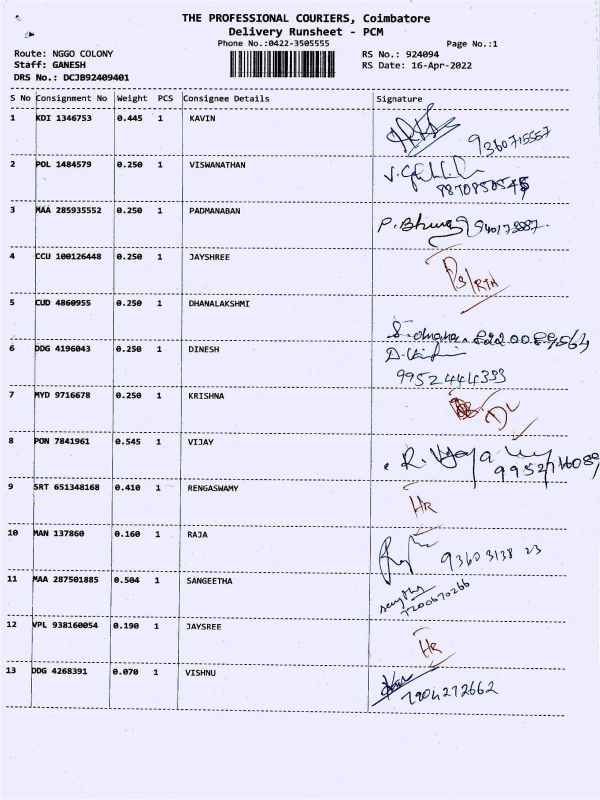 THE PROFESSIONAL COURIERS, Coimbatore
Delivery Runsheet - PCM
Phone No.:0422-3505555
Page No.:1
Route: NGGO COLONY
RS No.: 924094
Staff: GANESH
RS Date: 16-Apr-2022
DRS No.: DCJB92409401
S No Consignment No Weight PCS Consignee Details Signature
1 KDI 1346753 0.445 1 KAVIN
9360715557
2 POL 1484579 0.250 1 VISWANATHAN
3 MAA 285935552 0.250 1 PADMANABAN
P.
4 CCU 100126448 0.250 1 JAYSHREE
5 CUD 4860955 0.250 1 DHANALAKSHMI
6 DDG 4196043 0.250 1 DINESH
9952444333
7 MYD 9716678 0.250 1 KRISHNA
DL
8 PON 7841961 0.545 1 VIJAY
R.
9 SRT 651348168 0.410 1 RENGASWAMY
HR
10 MAN 137860 0.160 1 RAJA
93603138 23
11 MAA 287501885 0.504 1 SANGEETHA
7200670266
12 VPL 938160054 0.190 1 JAYSREE
HR
13 DDG 4268391 0.070 1 VISHNU
7904272662